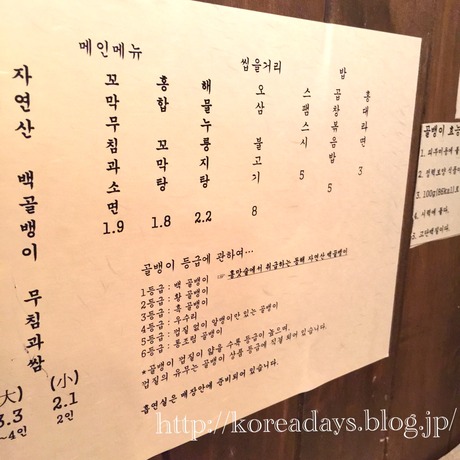 메인메뉴
씹을거리
밥
자연산 백골뱅이 무침과쌈
(大) (小)
3.3 2.1
~4인 2인
꼬막무침과소면
1.9
홍합 꼬막탕
1.8
해물누룽지탕
2.2
오삼 불고기
8
스팸스시
5
곱창볶음밥
5
홍대라면
3
골뱅이 등급에 관하여...
☞ 홍맛술에서 취급하는 동해 자연산 백골뱅이
1등급 : 백 골뱅이
2등급 : 황 골뱅이
3등급 : 흑 골뱅이
4등급 : 우수리
5등급 : 껍질 없이 알맹이만 있는 골뱅이
6등급 : 통조림 골뱅이
*골뱅이 껍질이 얇을 수록 등급이 높으며,
껍질의 유무는 골뱅이 상품 등급에 직결 되어 있습니다.
흡연실은 매장안에 준비되어 있습니다.
골뱅이 효능
1. 피부미용에
2. 정력보양 식품
3. 100g(86Kal)
4. 시력에 좋다.
5. 고단백질이다.
http://koreadays.blog.jp/